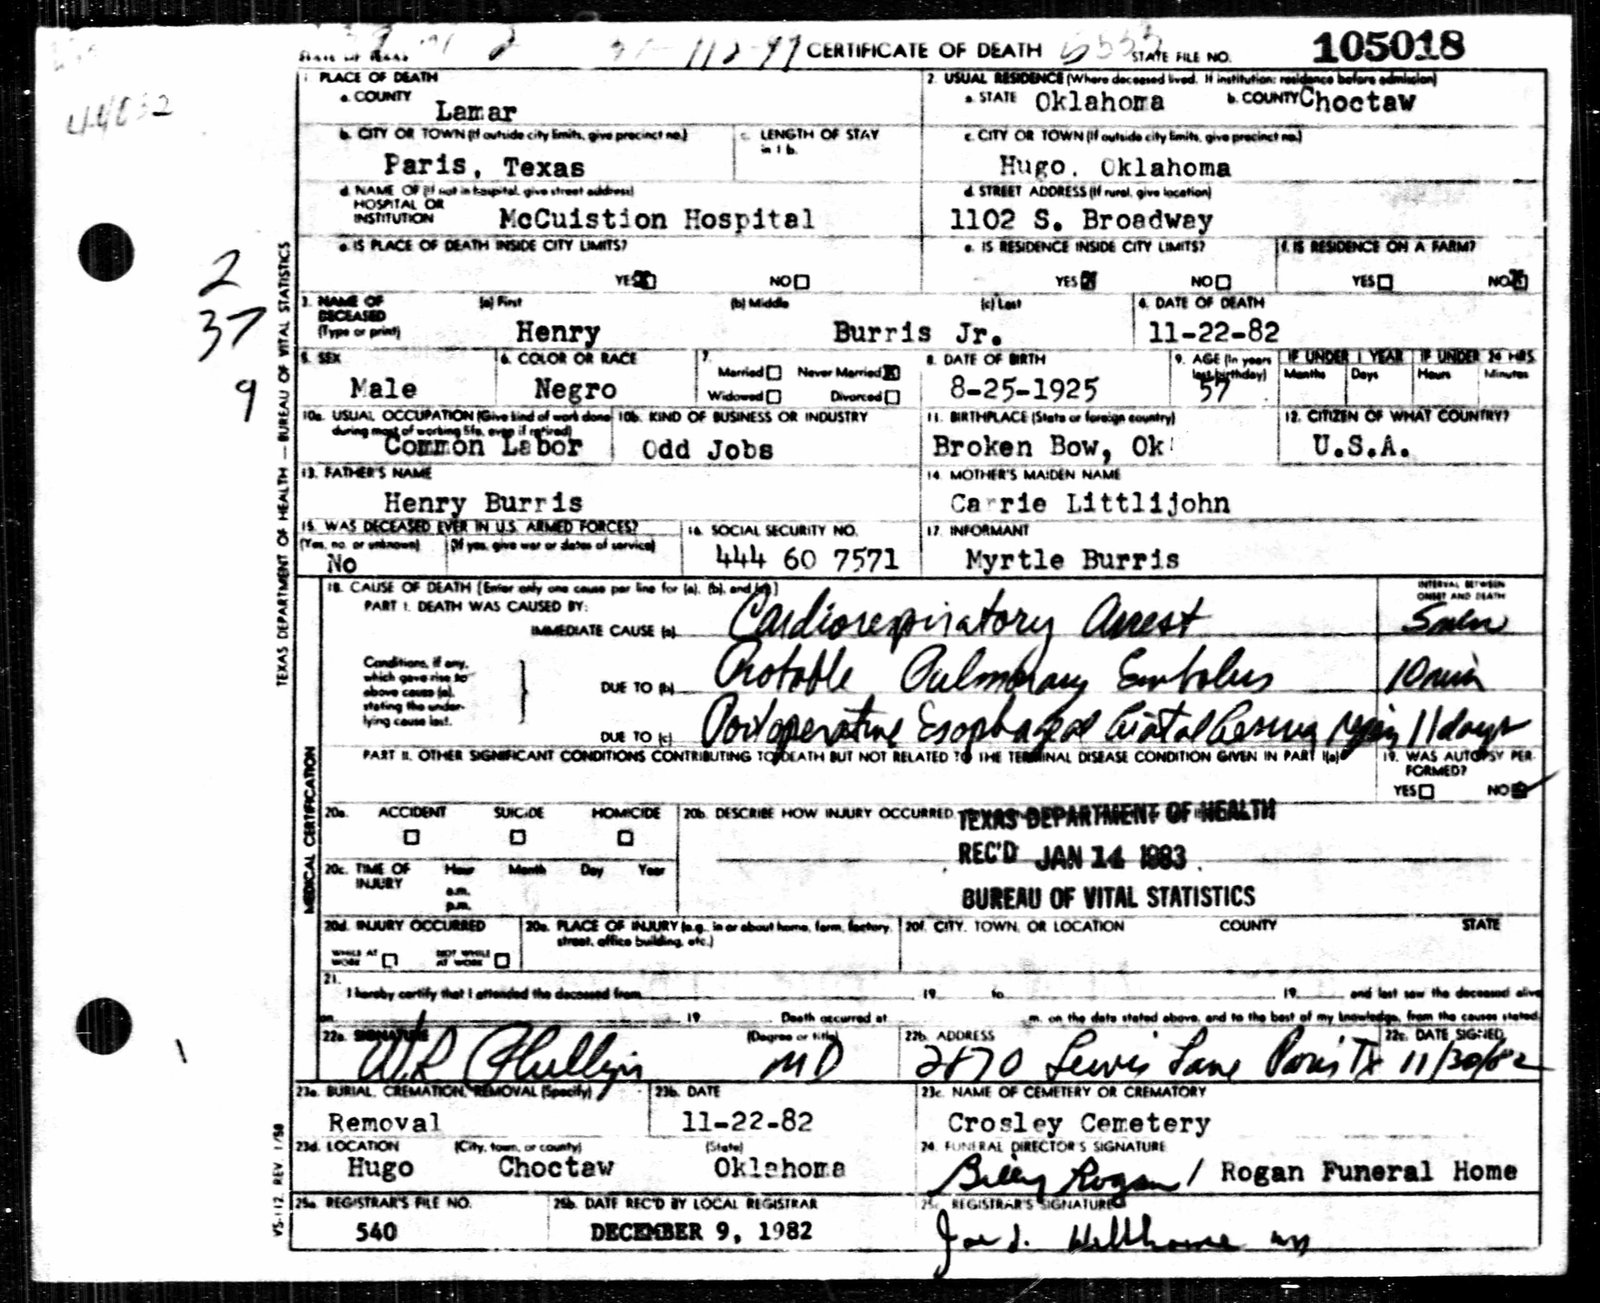 STATE OF TEXAS CERTIFICATE OF DEATH STATE FILE NO. 105018
1. PLACE OF DEATH
a. COUNTY
Lamar
2. USUAL RESIDENCE (Where deceased lived. If institution: residence before admission)
a. STATE Oklahoma b. COUNTY Choctaw
b. CITY OR TOWN (If outside city limits, give precinct no.)
Paris, Texas
c. LENGTH OF STAY
in 1 b.
c. CITY OR TOWN (If outside city limits, give precinct no.)
Hugo. Oklahoma
d. NAME OF (If not in hospital, give street address)
HOSPITAL OR
INSTITUTION McCuistion Hospital
d. STREET ADDRESS (If rural, give location)
1102 S. Broadway
e. IS PLACE OF DEATH INSIDE CITY LIMITS?
YES NO
e. IS RESIDENCE INSIDE CITY LIMITS?
YES NO
f. IS RESIDENCE ON A FARM?
YES NO
2
37
9
3. NAME OF
DECEASED
(Type or print)
(a) First (b) Middle (c) Last
Henry Burris Jr.
4. DATE OF DEATH
11-22-82
5. SEX
Male
6. COLOR OR RACE
Negro
7.
Married Never Married
Widowed Divorced
8. DATE OF BIRTH
8-25-1925
9. AGE (In years
last birthday)
57
IF UNDER 1 YEAR
Months Days
IF UNDER 24 HRS.
Hours Minutes
10a. USUAL OCCUPATION (Give kind of work done
during most of working life, even if retired)
Common Labor
10b. KIND OF BUSINESS OR INDUSTRY
Odd Jobs
11. BIRTHPLACE (State or foreign country)
Broken Bow, Ok
12. CITIZEN OF WHAT COUNTRY?
U.S.A.
13. FATHER'S NAME
Henry Burris
14. MOTHER'S MAIDEN NAME
Carrie Littlijohn
15. WAS DECEASED EVER IN U.S. ARMED FORCES?
(Yes, no, or unknown) (If yes, give war or dates of service)
No
16. SOCIAL SECURITY NO.
444 60 7571
17. INFORMANT
Myrtle Burris
18. CAUSE OF DEATH [Enter only one cause per line for (a), (b), and (c)]
PART I. DEATH WAS CAUSED BY:
INTERVAL BETWEEN
ONSET AND DEATH
IMMEDIATE CAUSE (a) Cardiorespiratory Arrest 5 min
Conditions, if any,
which gave rise to
above cause (a),
stating the under-
lying cause last.
DUE TO (b) Probable Pulmonary Embolus 10 min
DUE TO (c) Postoperative Esophageal Hiatal Hernia repair 11 days
PART II. OTHER SIGNIFICANT CONDITIONS CONTRIBUTING TO DEATH BUT NOT RELATED TO THE TERMINAL DISEASE CONDITION GIVEN IN PART I(a)
19. WAS AUTOPSY PER-
FORMED?
YES NO
20a. ACCIDENT SUICIDE HOMICIDE
20b. DESCRIBE HOW INJURY OCCURRED.
TEXAS DEPARTMENT OF HEALTH
REC'D JAN 14 1983
BUREAU OF VITAL STATISTICS
20c. TIME OF
INJURY
Hour Month Day Year
a.m.
p.m.
20d. INJURY OCCURRED
WHILE AT
WORK
NOT WHILE
AT WORK
20e. PLACE OF INJURY (e.g., in or about home, farm, factory,
street, office building, etc.)
20f. CITY, TOWN, OR LOCATION COUNTY STATE
21.
I hereby certify that I attended the deceased from 19 to 19 and last saw the deceased alive
on 19 Death occurred at m. on the date stated above, and to the best of my knowledge, from the causes stated.
22a. SIGNATURE (Degree or title)
MD
22b. ADDRESS
2870 Lewis Lane Paris Tx
22c. DATE SIGNED
11/30/82
23a. BURIAL, CREMATION, REMOVAL (Specify)
Removal
23b. DATE
11-22-82
23c. NAME OF CEMETERY OR CREMATORY
Crosley Cemetery
23d. LOCATION (City, town, or county) (State)
Hugo Choctaw Oklahoma
24. FUNERAL DIRECTOR'S SIGNATURE
Billy Rogan / Rogan Funeral Home
25a. REGISTRAR'S FILE NO.
540
25b. DATE REC'D BY LOCAL REGISTRAR
DECEMBER 9, 1982
25c. REGISTRAR'S SIGNATURE
TEXAS DEPARTMENT OF HEALTH — BUREAU OF VITAL STATISTICS
MEDICAL CERTIFICATION
VS-112 REV 1/58